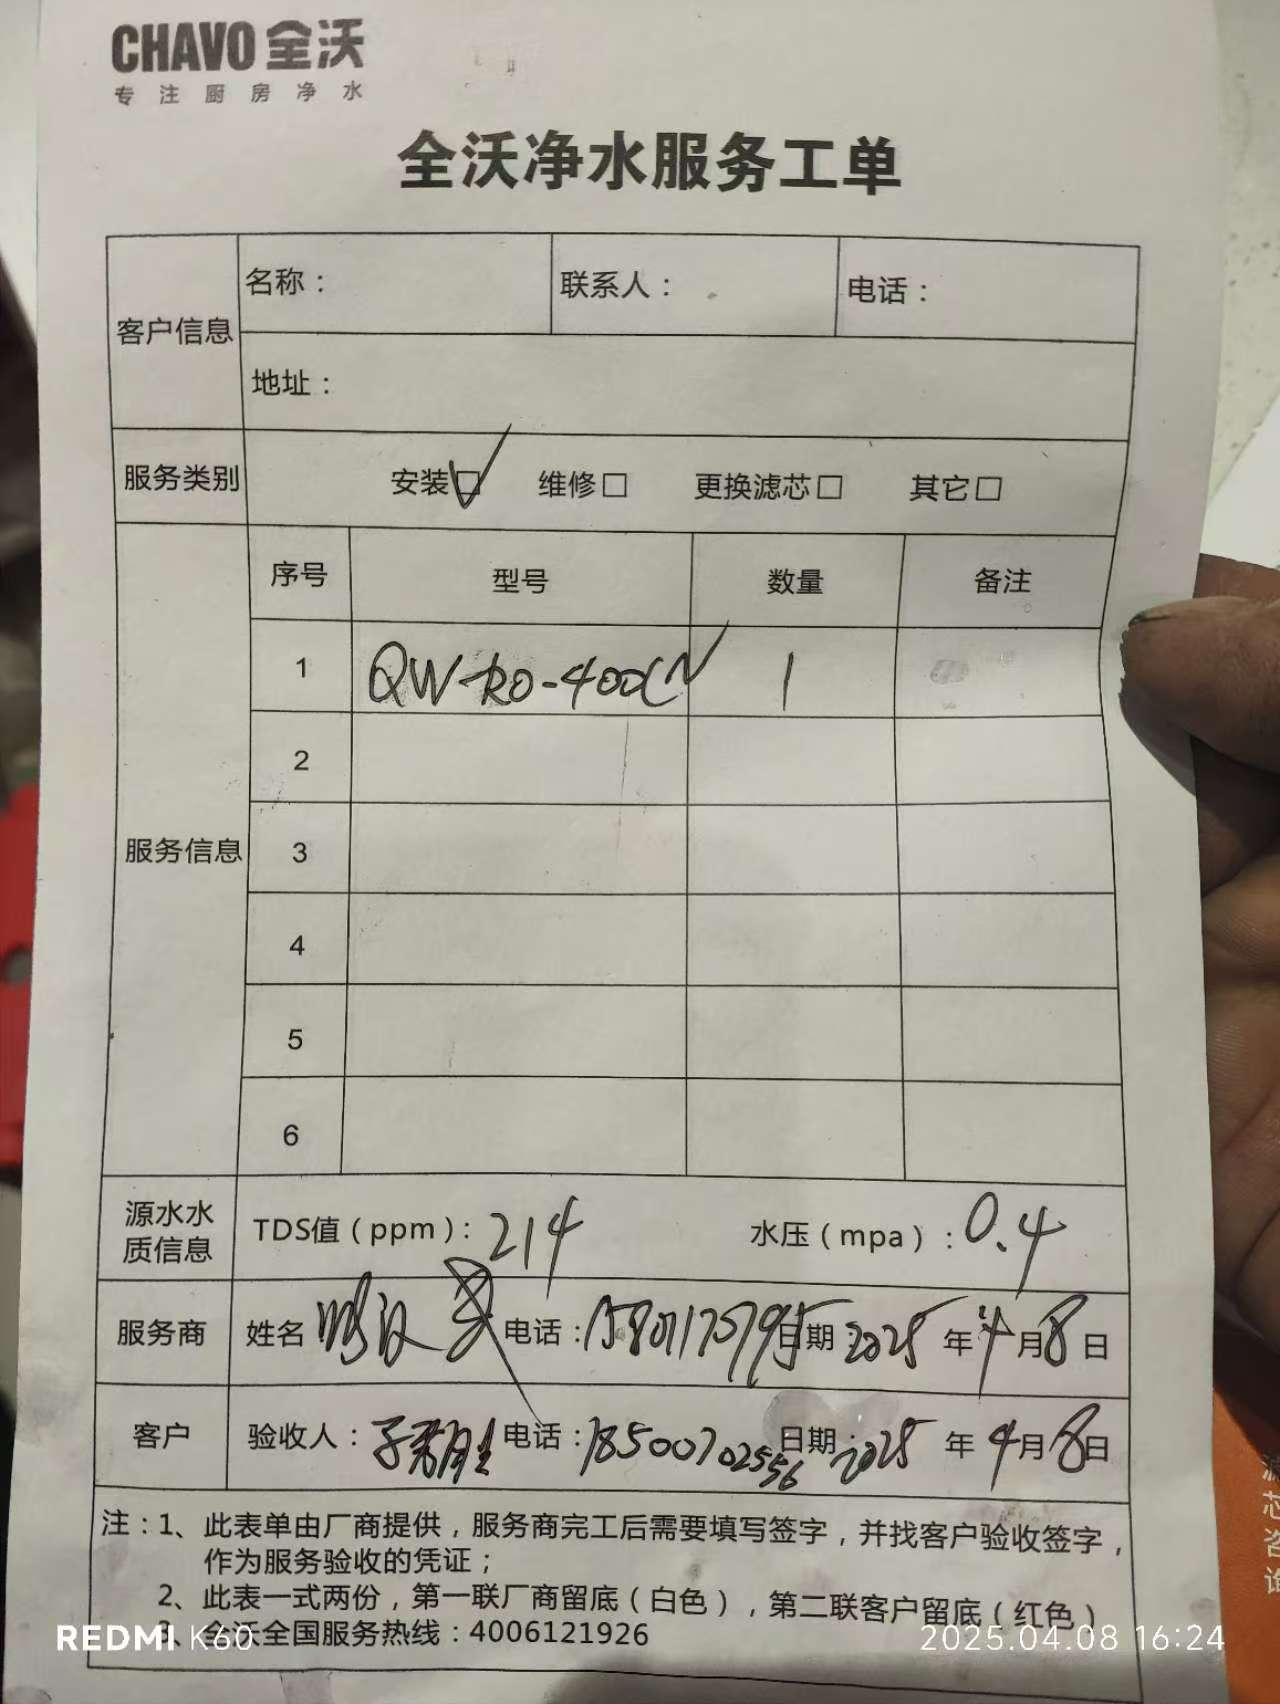 CHAVO 全沃
专注厨房净水
全沃净水服务工单
客户信息 名称： 联系人： 电话：
地址：
服务类别 安装☑ 维修□ 更换滤芯□ 其它□
服务信息 序号 型号 数量 备注
1 QW-RO-400CN 1
2
3
4
5
6
源水水质信息 TDS值（ppm）：214 水压（mpa）：0.4
服务商 姓名 电话： 日期 2025 年 4 月 8 日
客户 验收人： 电话：18500702556 日期：2025 年 4 月 8 日
注：1、此表单由厂商提供，服务商完工后需要填写签字，并找客户验收签字，
作为服务验收的凭证；
2、此表一式两份，第一联厂商留底（白色），第二联客户留底（红色）
3、全沃全国服务热线：4006121926
芯咨询
REDMI K60
2025.04.08 16:24